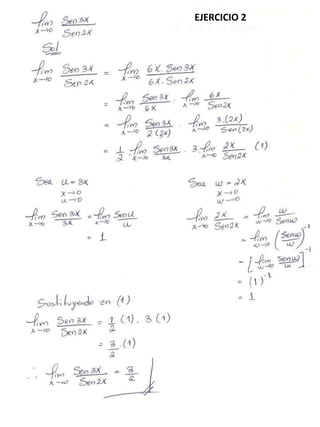 lim x→0 Sen3x / Sen2x
EJERCICIO 2
Sol
lim x→0 Sen 3x / Sen 2x = lim x→0 6x. Sen 3x / 6x. Sen 2x
= lim x→0 Sen3x / 6x . lim x→0 6x / Sen2x
= lim x→0 Sen3x / 2(3x) . lim x→0 3.(2x) / Sen(2x)
= 1/2 . lim x→0 Sen3x / 3x . 3. lim x→0 2x / Sen2x (1)
Sea u = 3x
x→0
u→0
lim x→0 Sen 3x / 3x = lim u→0 Senu / u
= 1
Sea w = 2x
x→0
w→0
lim x→0 2x / Sen2x = lim w→0 w / Senw
= lim w→0 (Senw / w)^-1
= [lim w→0 Senw / w]^-1
= (1)^-1
= 1
Sustituyendo en (1)
lim x→0 Sen3x / Sen2x = 1/2 (1). 3 (1)
= 3/2 .(1)
∴ lim x→0 Sen3x / Sen2x = 3/2